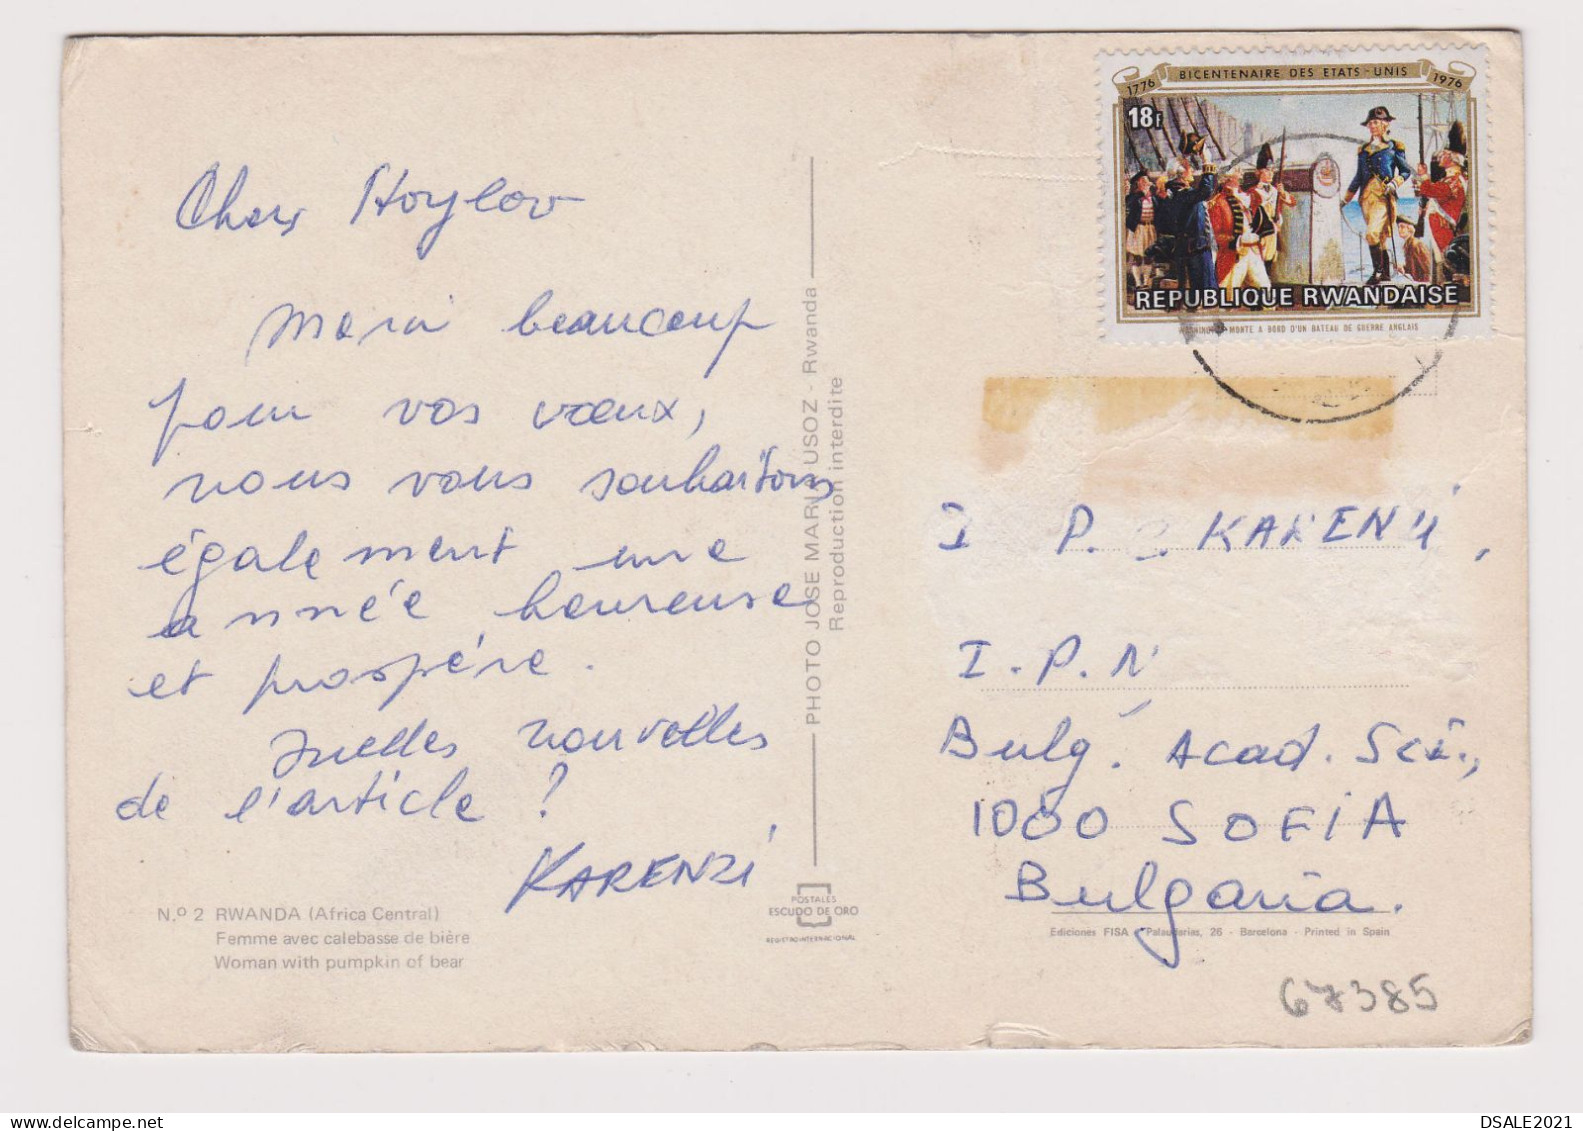 Cher Hoylov
Merci beaucoup
pour vos vœux,
nous vous souhaitons
également une
année heureuse
et prospère.
Quelles nouvelles
de l'article ?
KARENZI
N.º 2 RWANDA (Africa Central)
Femme avec calebasse de bière
Woman with pumpkin of bear
PHOTO JOSE MARI USOZ - Rwanda
Reproduction interdite
POSTALES
ESCUDO DE ORO
REGISTRO INTERNACIONAL
1776 BICENTENAIRE DES ETATS-UNIS 1976
18F
REPUBLIQUE RWANDAISE
WASHINGTON MONTE A BORD D'UN BATEAU DE GUERRE ANGLAIS
I P. KARENZI,
I.P.N
Bulg. Acad. Sci.,
1000 SOFIA
Bulgaria.
Ediciones FISA - Palaudarias, 26 - Barcelona - Printed in Spain
67385
DSALE2021